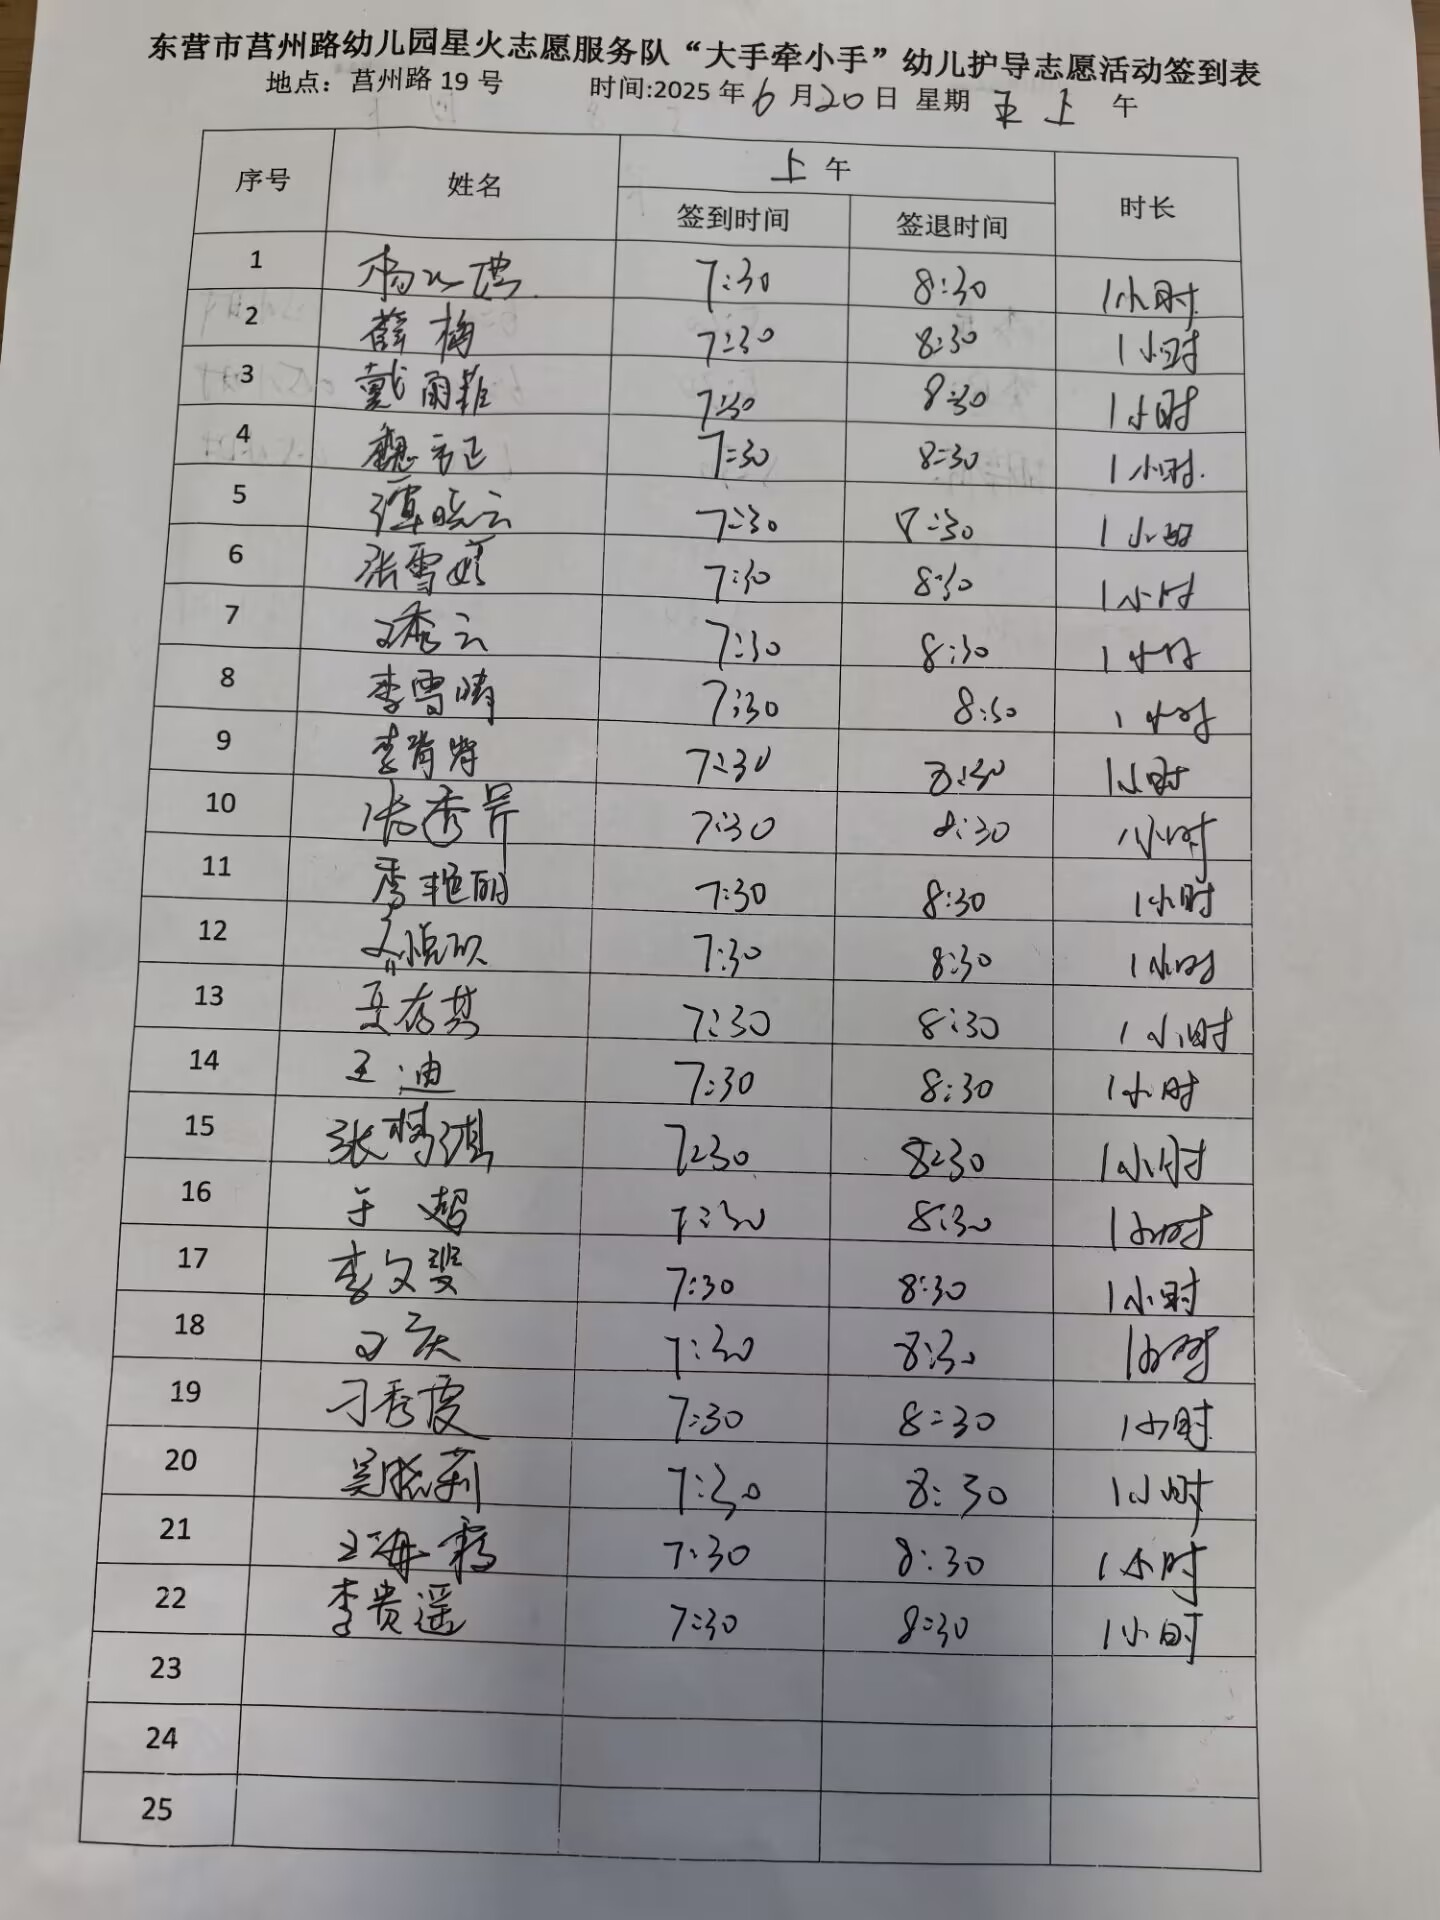 东营市莒州路幼儿园星火志愿服务队“大手牵小手”幼儿护导志愿活动签到表
地点：莒州路 19 号 时间:2025 年 6 月 20 日 星期 五 上 午
序号 姓名 上 午 时长
签到时间 签退时间
1 7:30 8:30 1小时
2 薛梅 7:30 8:30 1小时
3 戴雨菲 7:30 8:30 1小时
4 7:30 8:30 1小时
5 谭晓云 7:30 8:30 1小时
6 张雪 7:30 8:30 1小时
7 王秀云 7:30 8:30 1小时
8 李雪晴 7:30 8:30 1小时
9 李 7:30 8:30 1小时
10 张秀芹 7:30 8:30 1小时
11 季艳丽 7:30 8:30 1小时
12 7:30 8:30 1小时
13 夏存英 7:30 8:30 1小时
14 王迪 7:30 8:30 1小时
15 张博 7:30 8:30 1小时
16 于超 7:30 8:30 1小时
17 李文 7:30 8:30 1小时
18 7:30 8:30 1小时
19 刁秀霞 7:30 8:30 1小时
20 吴晓莉 7:30 8:30 1小时
21 王海霞 7:30 8:30 1小时
22 李贵遥 7:30 8:30 1小时
23
24
25